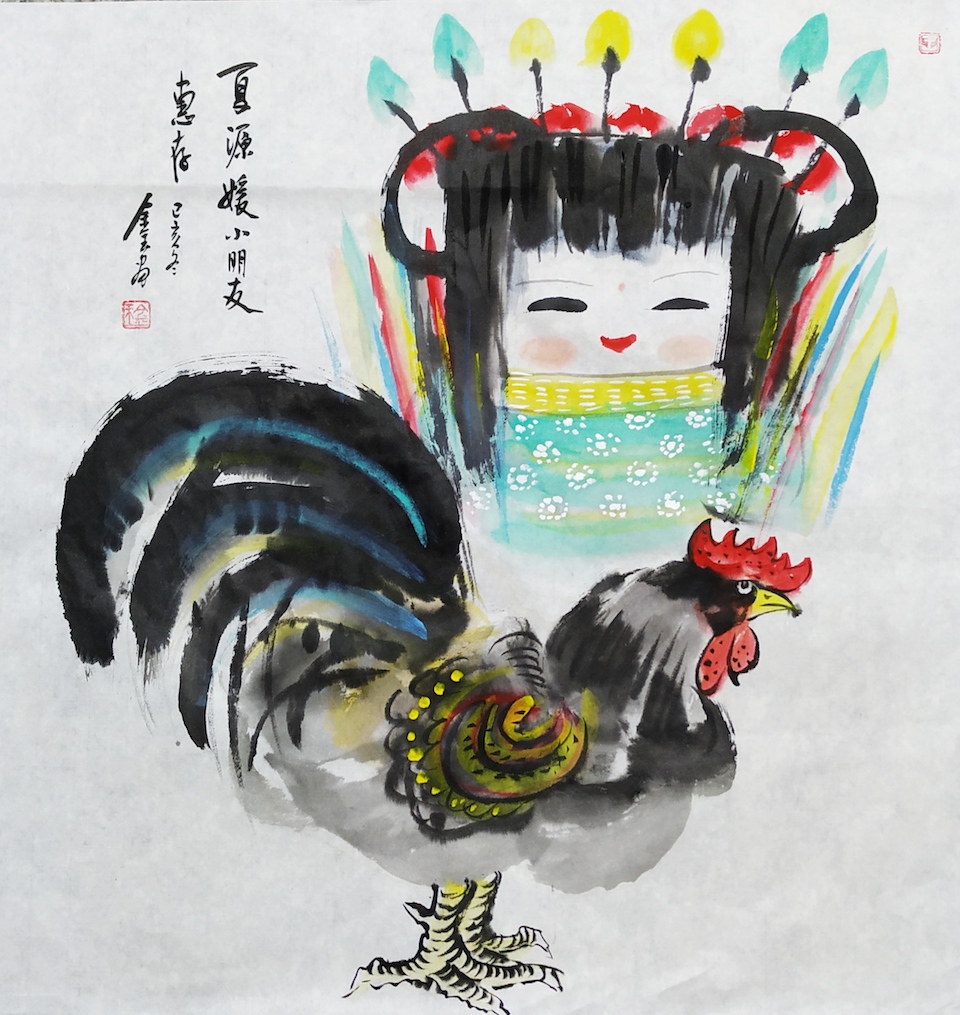 夏源媛小朋友
惠存
己亥冬
画